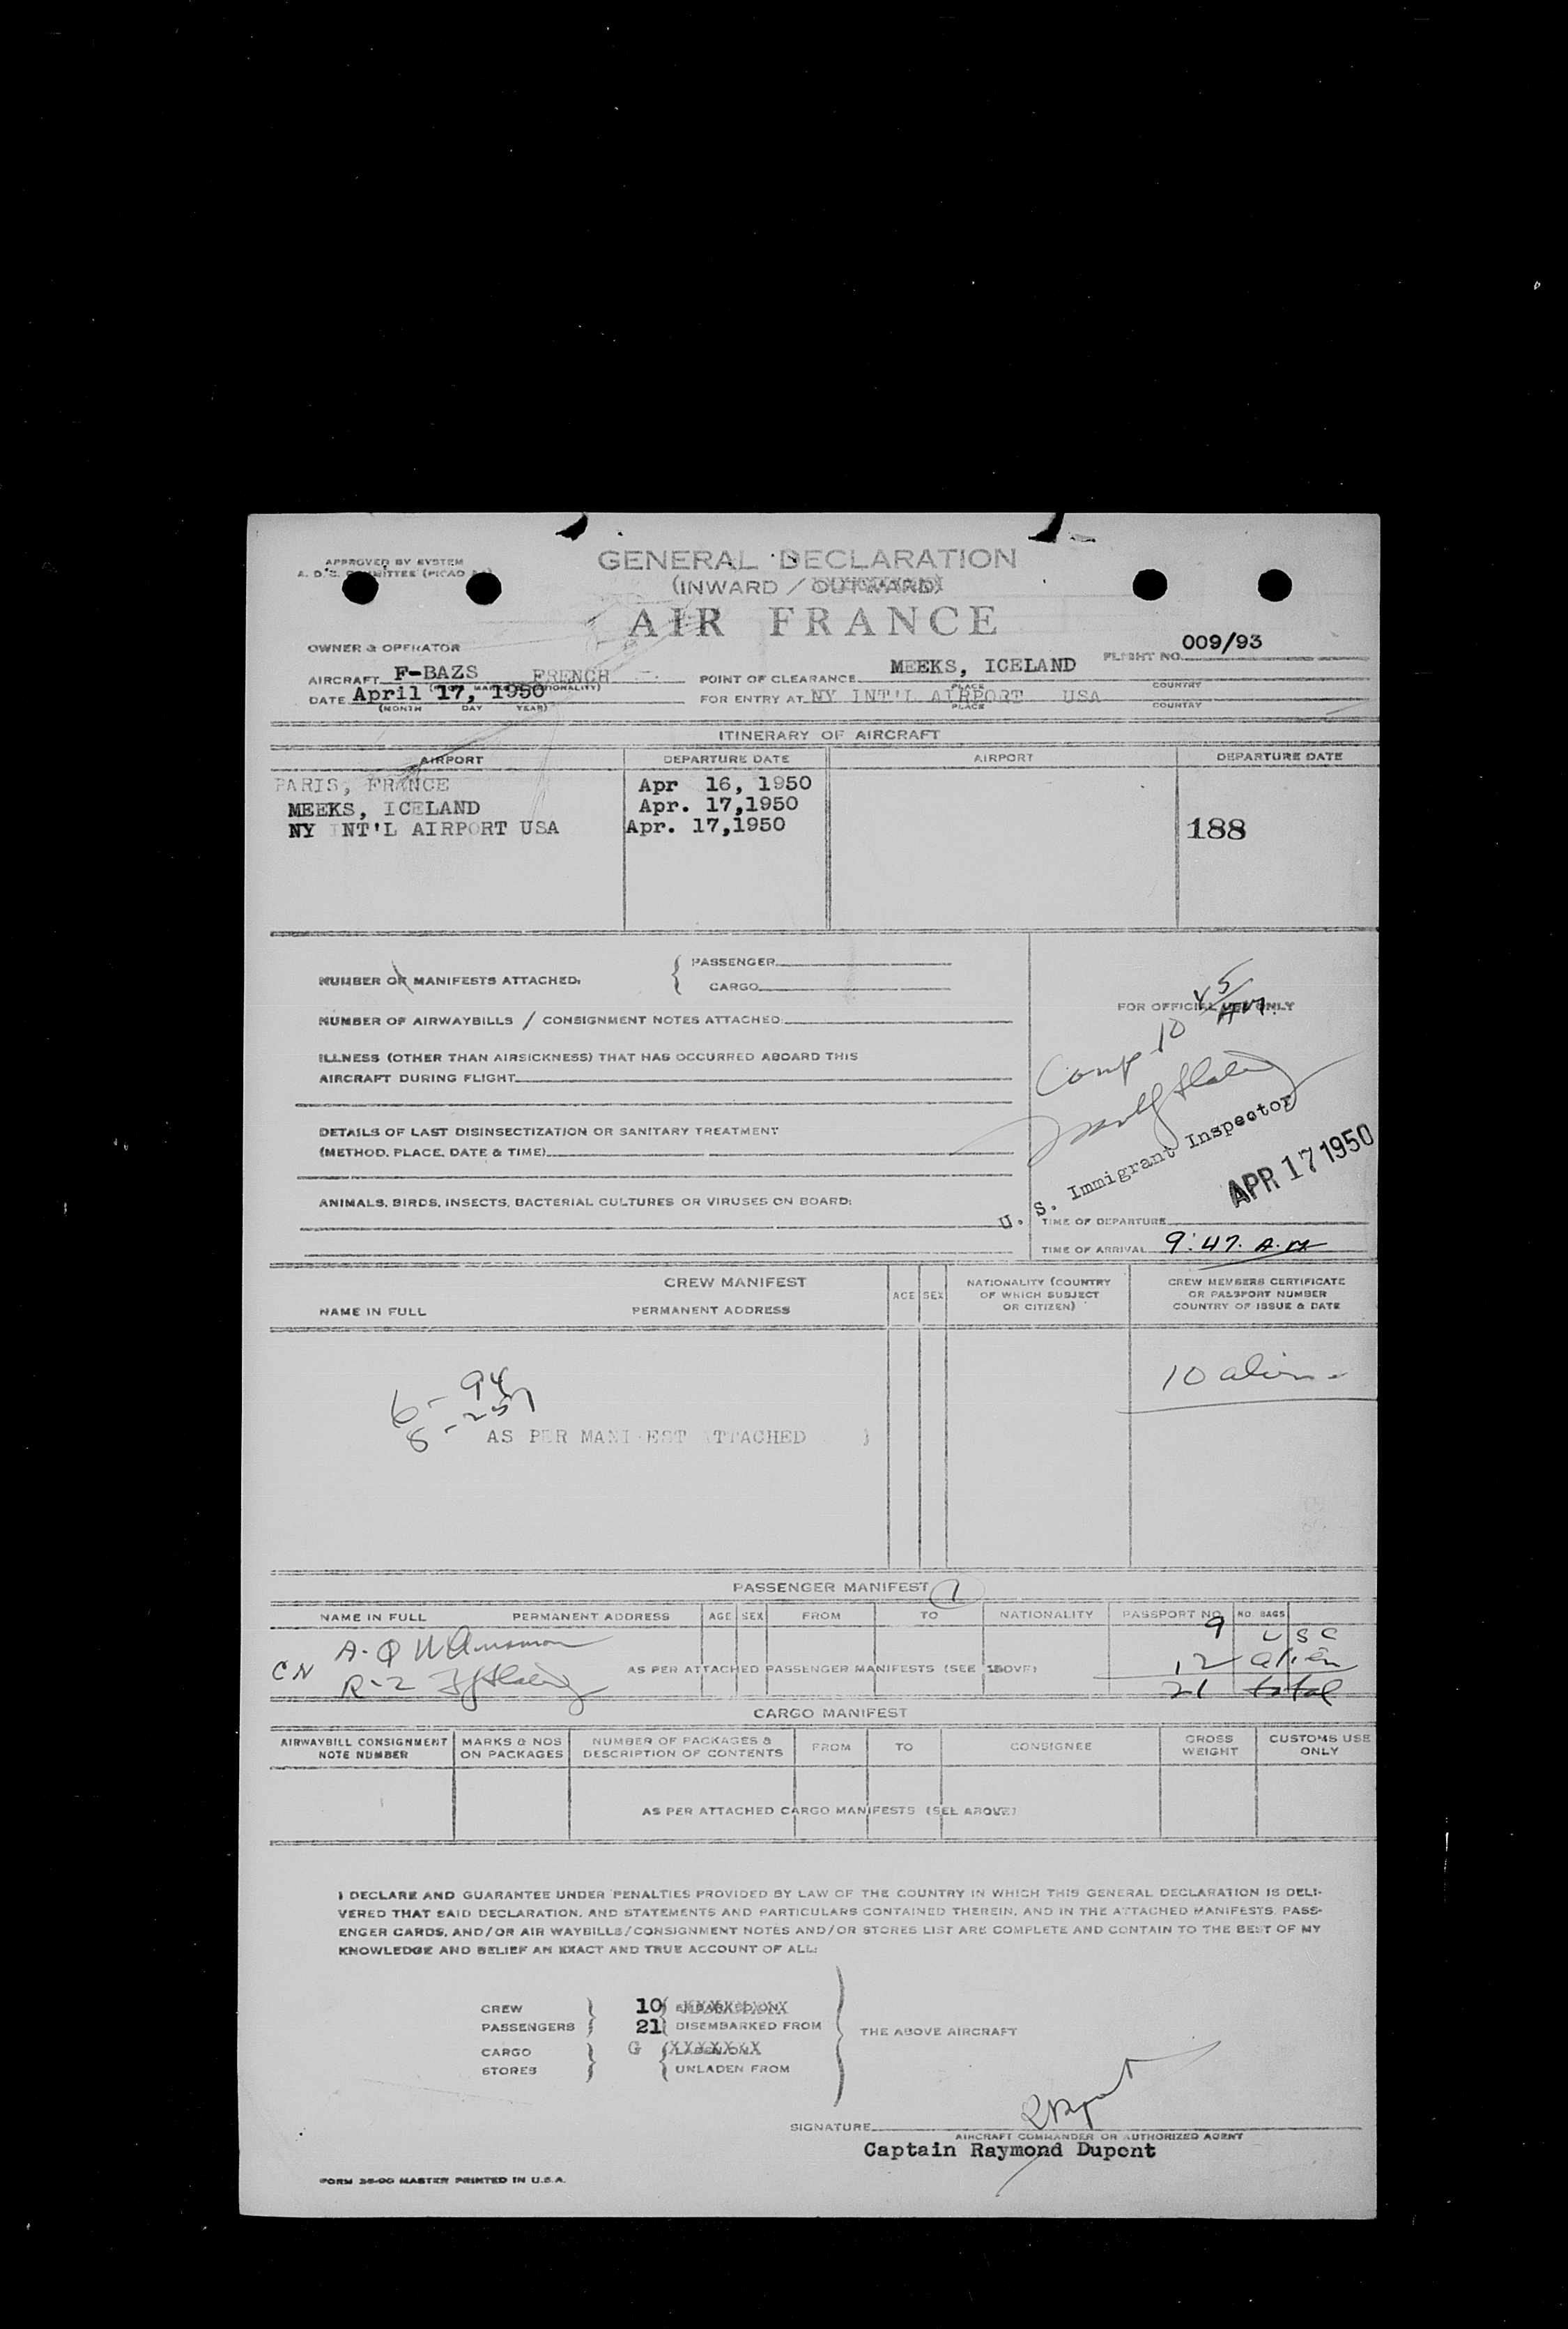 APPROVED BY SYSTEM
GENERAL DECLARATION
(INWARD / OUTWARD)
AIR FRANCE
OWNER & OPERATOR
FLIGHT NO. 009/93
AIRCRAFT F-BAZS FRENCH
POINT OF CLEARANCE MEEKS, ICELAND
PLACE COUNTRY
DATE April 17, 1950
(MONTH DAY YEAR)
FOR ENTRY AT NY INT'L AIRPORT USA
PLACE COUNTRY
ITINERARY OF AIRCRAFT
AIRPORT DEPARTURE DATE AIRPORT DEPARTURE DATE
PARIS, FRANCE Apr 16, 1950
MEEKS, ICELAND Apr. 17,1950
NY NT'L AIRPORT USA Apr. 17,1950
188
NUMBER OF MANIFESTS ATTACHED:
PASSENGER
CARGO
NUMBER OF AIRWAYBILLS / CONSIGNMENT NOTES ATTACHED:
ILLNESS (OTHER THAN AIRSICKNESS) THAT HAS OCCURRED ABOARD THIS
AIRCRAFT DURING FLIGHT
DETAILS OF LAST DISINSECTIZATION OR SANITARY TREATMENT
(METHOD, PLACE, DATE & TIME)
ANIMALS, BIRDS, INSECTS, BACTERIAL CULTURES OR VIRUSES ON BOARD:
FOR OFFICIAL USE ONLY
Comp 10 45 AM.
U. S. Immigrant Inspector
APR 17 1950
TIME OF DEPARTURE
TIME OF ARRIVAL 9:47. A.M
CREW MANIFEST
NAME IN FULL PERMANENT ADDRESS AGE SEX
NATIONALITY (COUNTRY
OF WHICH SUBJECT
OR CITIZEN)
CREW MEMBERS CERTIFICATE
OR PASSPORT NUMBER
COUNTRY OF ISSUE & DATE
10 aliens
6 - 94
8 - 257
AS PER MANI EST TTACHED )
PASSENGER MANIFEST 1
NAME IN FULL PERMANENT ADDRESS AGE SEX FROM TO NATIONALITY PASSPORT NO. NO. BAGS
9 USC
CN
AS PER ATTACHED PASSENGER MANIFESTS (SEE ABOVE)
12 alien
21 total
CARGO MANIFEST
AIRWAYBILL CONSIGNMENT
NOTE NUMBER
MARKS & NOS
ON PACKAGES
NUMBER OF PACKAGES &
DESCRIPTION OF CONTENTS
FROM TO CONSIGNEE
GROSS
WEIGHT
CUSTOMS USE
ONLY
AS PER ATTACHED CARGO MANIFESTS (SEE ABOVE)
I DECLARE AND GUARANTEE UNDER PENALTIES PROVIDED BY LAW OF THE COUNTRY IN WHICH THIS GENERAL DECLARATION IS DELI-
VERED THAT SAID DECLARATION, AND STATEMENTS AND PARTICULARS CONTAINED THEREIN, AND IN THE ATTACHED MANIFESTS, PASS-
ENGER CARDS, AND/OR AIR WAYBILLS/CONSIGNMENT NOTES AND/OR STORES LIST ARE COMPLETE AND CONTAIN TO THE BEST OF MY
KNOWLEDGE AND BELIEF AN EXACT AND TRUE ACCOUNT OF ALL:
CREW 10
PASSENGERS 21 DISEMBARKED FROM
THE ABOVE AIRCRAFT
CARGO G
STORES UNLADEN FROM
SIGNATURE
AIRCRAFT COMMANDER OR AUTHORIZED AGENT
Captain Raymond Dupont
MASTER PRINTED IN U.S.A.